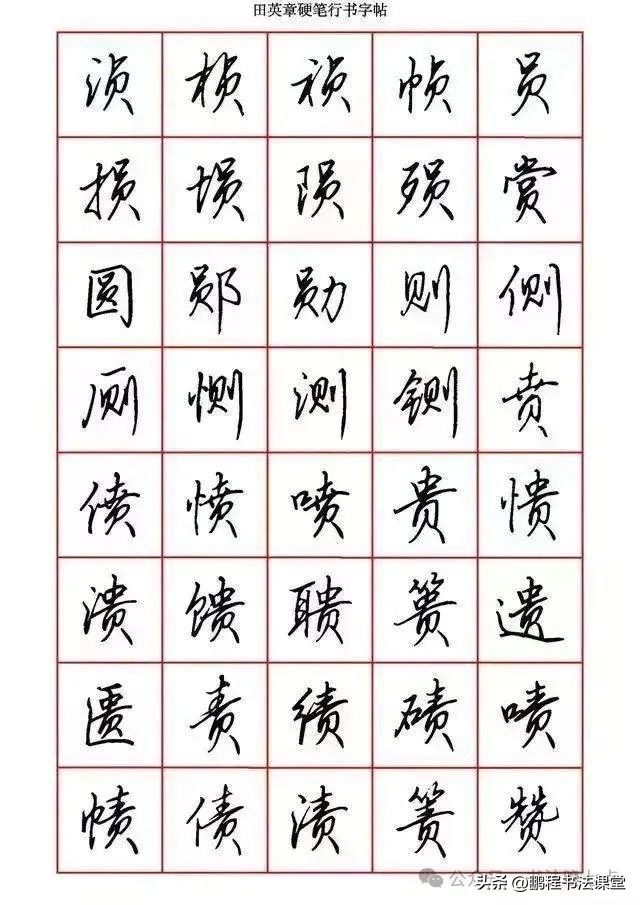 田英章硬笔行书字帖
浈 桢 祯 帧 员
损 埙 陨 殒 赏
圆 郧 勋 则 侧
厕 恻 测 铡 贲
偾 愤 喷 贵 愦
溃 馈 聩 篑 遗
匮 责 绩 碛 啧
帻 债 渍 箦 赞
公众号
头条@鹏程书法课堂